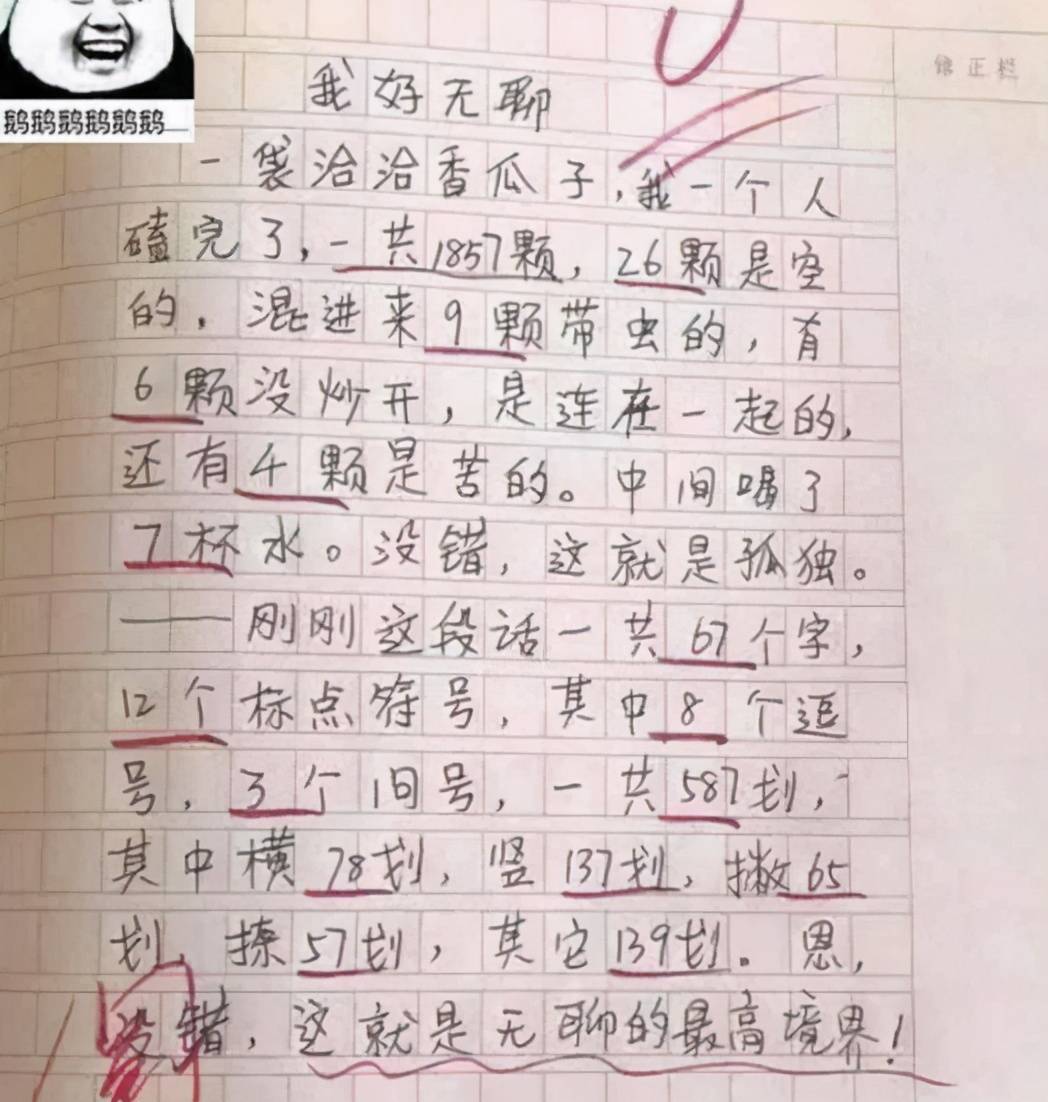 鹅鹅鹅鹅鹅鹅
修正栏
我好无聊
一袋洽洽香瓜子,我一个人
磕完了,一共1857颗,26颗是空
的,混进来9颗带虫的,有
6颗没炒开,是连在一起的,
还有4颗是苦的。中间喝了
7杯水。没错,这就是孤独。
——刚刚这段话一共67个字,
12个标点符号,其中8个逗
号,3个间号,一共587划,
其中横78划,竖137划,撇65
划,捺57划,其它139划。恩,
没错,这就是无聊的最高境界!